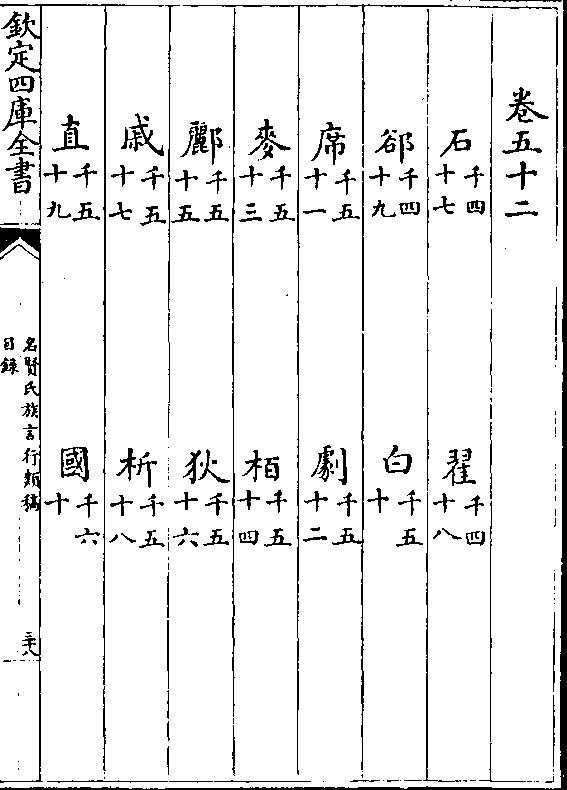 卷五十二
石 千四十七 翟 千四十八
郤 千四十九 白 千五十
席 千五十一 劇 千五十二
麥 千五十三 栢 千五十四
酈 千五十五 狄 千五十六
戚 千五十七 析 千五十八
直 千五十九 國 千六十
欽定四庫全書
名賢氏族言行類稿
目錄